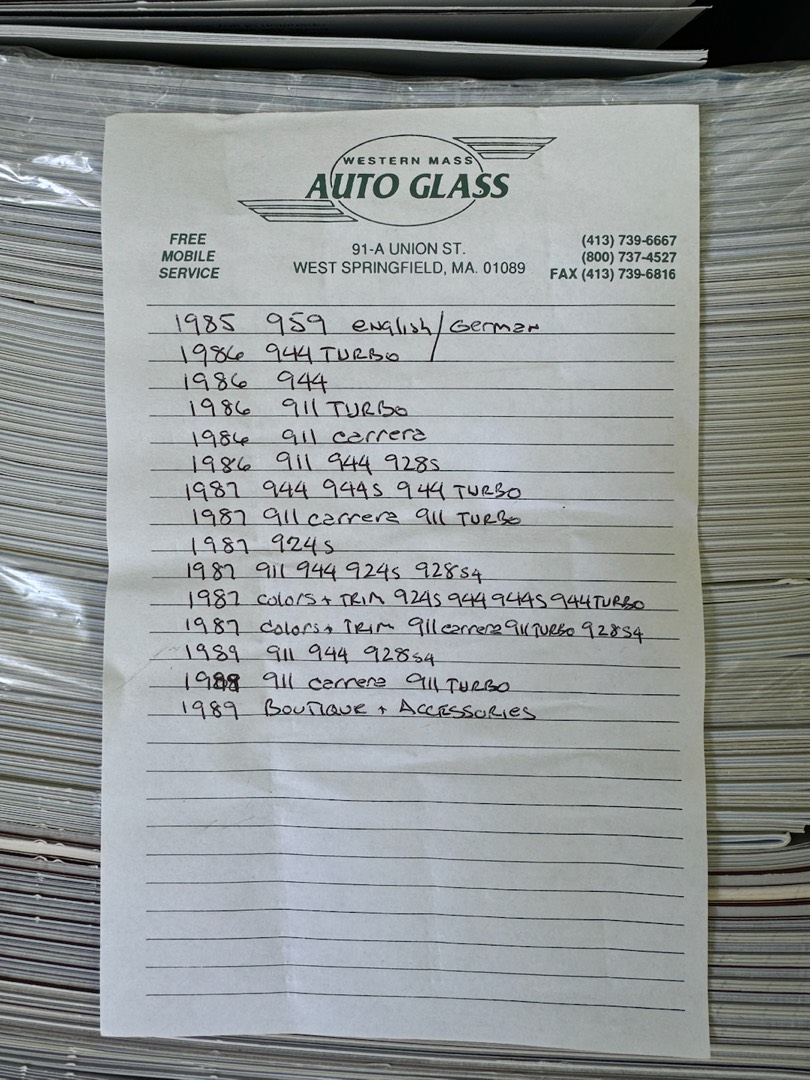 WESTERN MASS
AUTO GLASS
FREE
MOBILE
SERVICE
91-A UNION ST.
WEST SPRINGFIELD, MA. 01089
(413) 739-6667
(800) 737-4527
FAX (413) 739-6816
1985 959 English/German
1986 944 TURBO
1986 944
1986 911 TURBO
1986 911 Carrera
1986 911 944 928S
1987 944 944S 944 TURBO
1987 911 Carrera 911 TURBO
1987 924S
1987 911 944 924S 928S4
1987 Colors + TRIM 924S 944 944S 944 TURBO
1987 Colors + TRIM 911 Carrera 911 TURBO 928S4
1989 911 944 928S4
911 Carrera 911 TURBO
1989 BOUTIQUE + ACCESSORIES